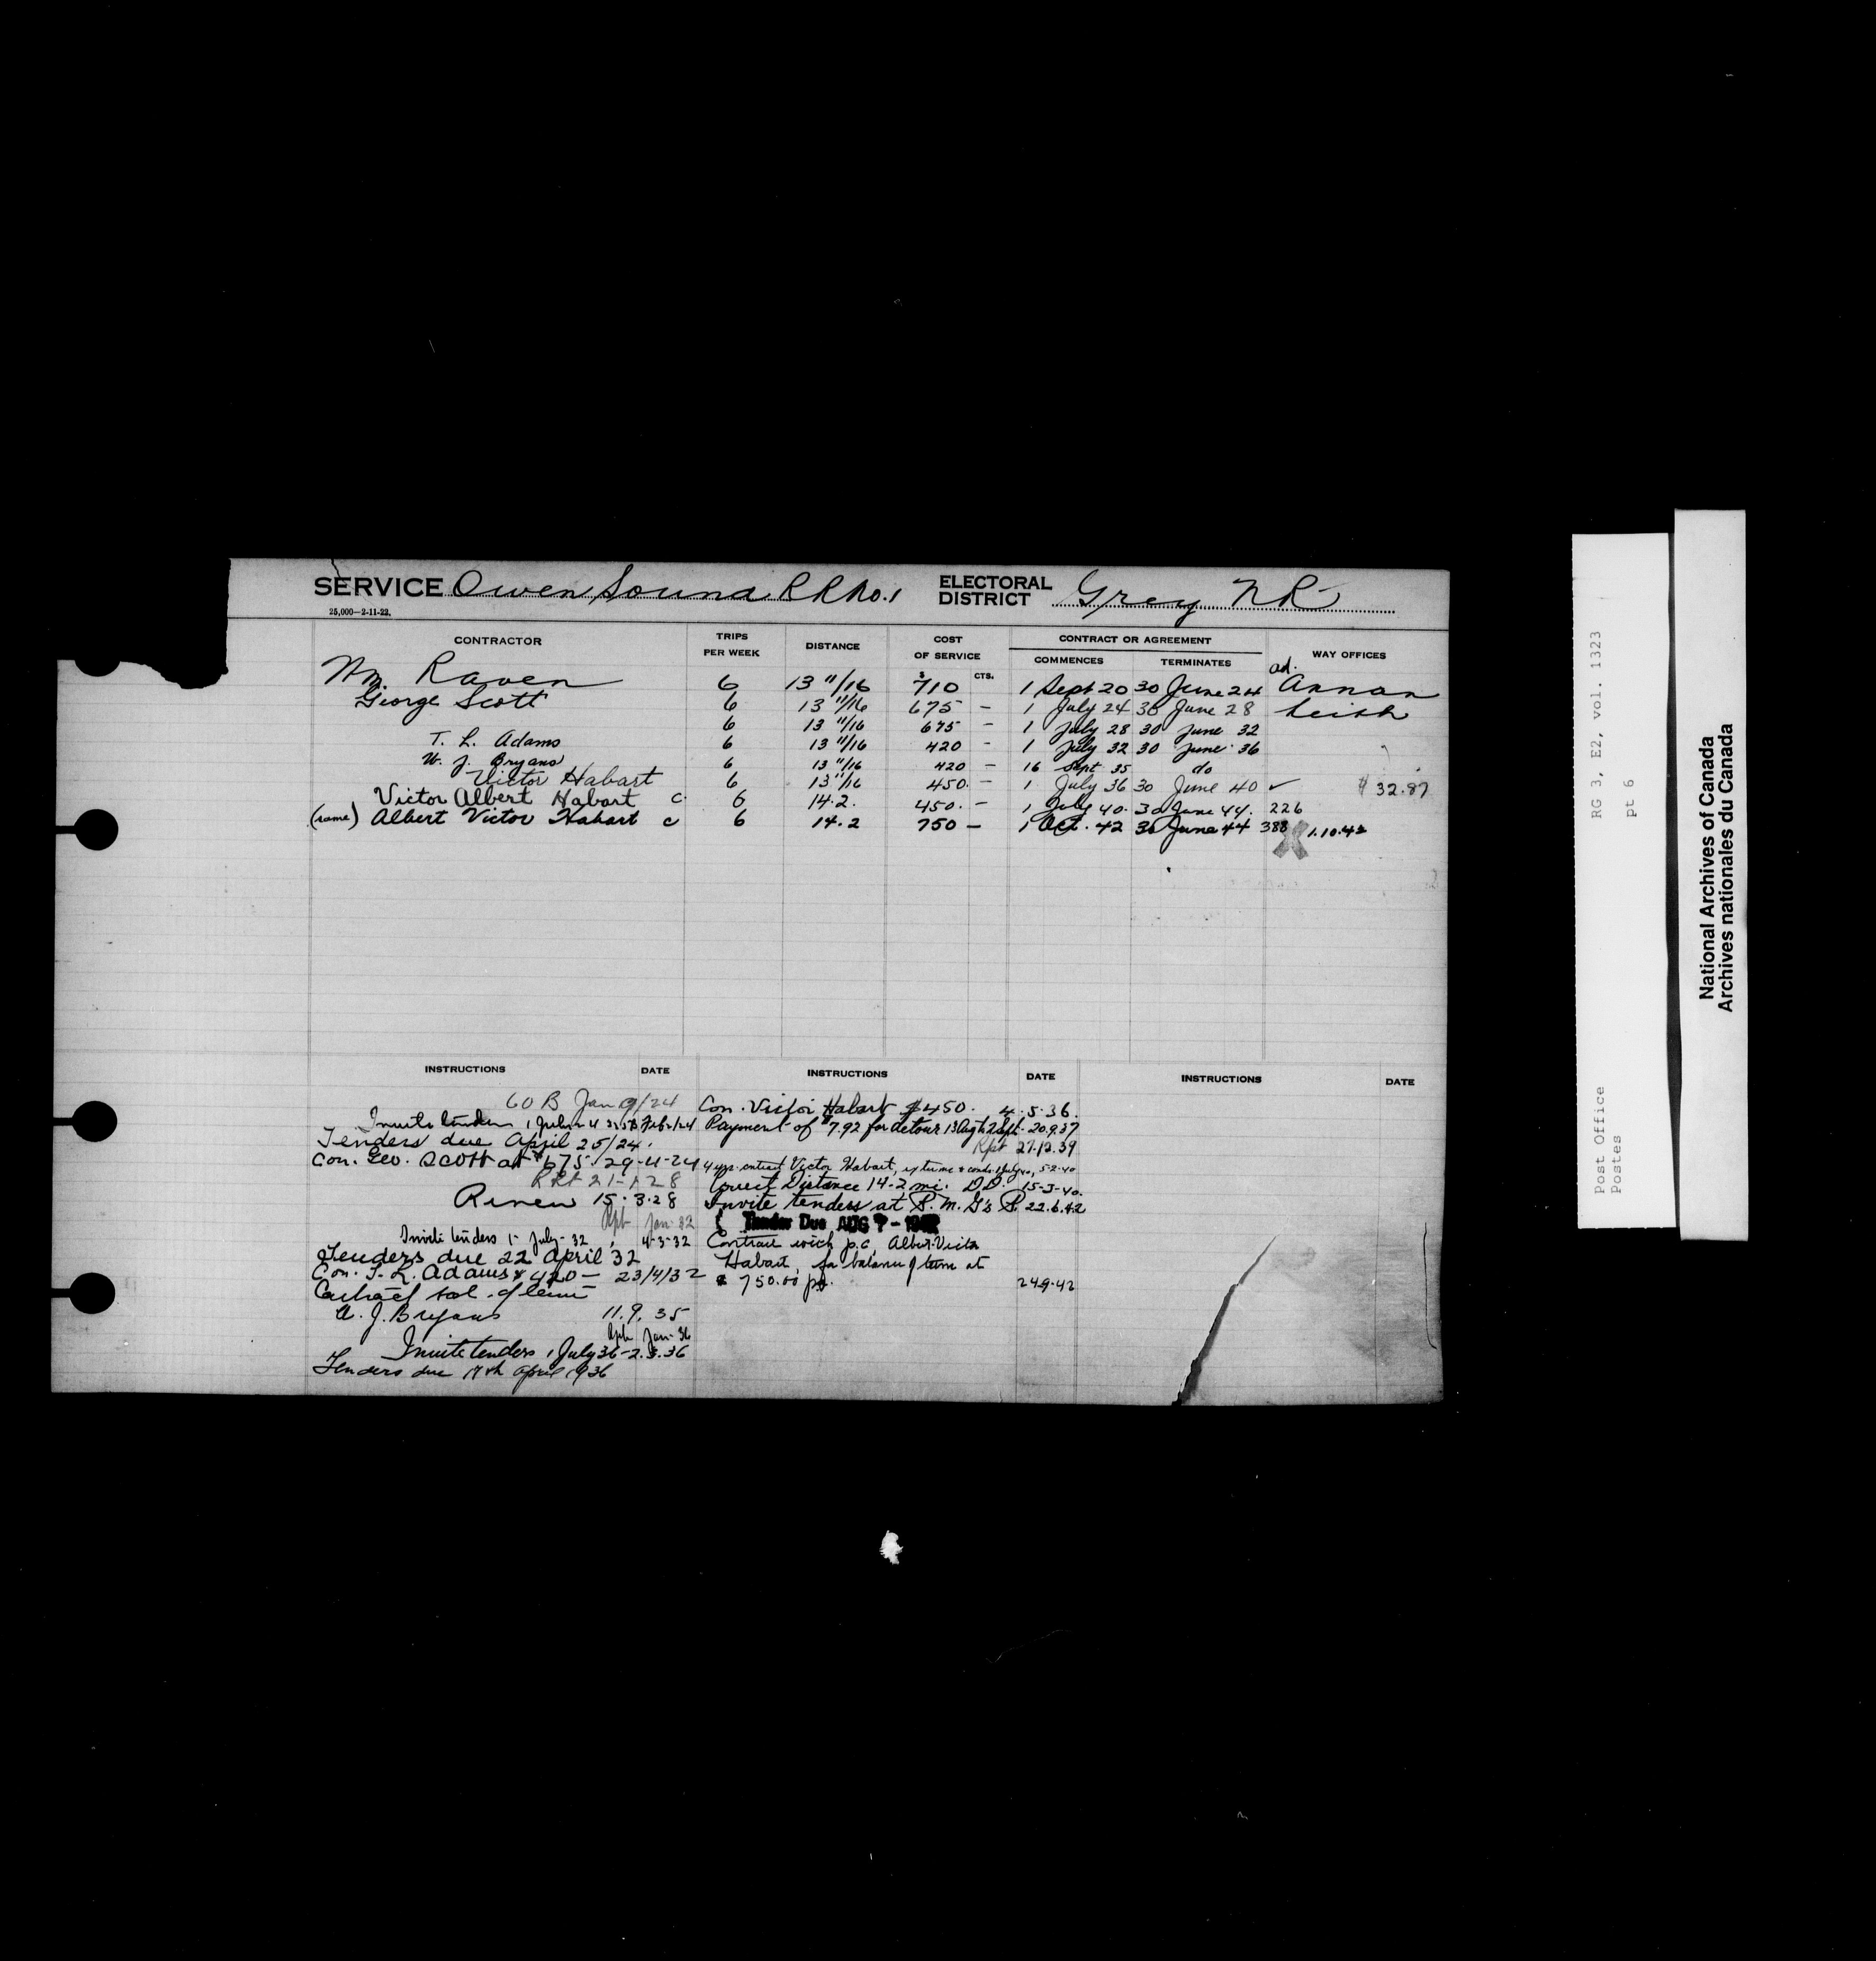 SERVICE Owen Sound R R No. 1 ELECTORAL DISTRICT Grey N R
25,000—2-11-22.
CONTRACTOR TRIPS PER WEEK DISTANCE COST OF SERVICE CONTRACT OR AGREEMENT WAY OFFICES
COMMENCES TERMINATES
$ CTS. ad.
Wm. Raven 6 13 11/16 710 1 Sept 20 30 June 24 Annan
George Scott 6 13 11/16 675 — 1 July 24 30 June 28 Leith
6 13 11/16 675 — 1 July 28 30 June 32
T. L. Adams 6 13 11/16 420 - 1 July 32 30 June 36
W. J. Bryans 6 13 11/16 420 — 16 Sept 35 do
Victor Habart 6 13 11/16 450. — 1 July 36 30 June 40 ✓ $ 32.87
Victor Albert Habart c. 6 14.2. 450. — 1 July 40. 30 June 44. 226
(same) Albert Victor Habart c 6 14.2 750 — 1 Oct. 42 30 June 44 388 1.10.42
INSTRUCTIONS DATE INSTRUCTIONS DATE INSTRUCTIONS DATE
60 B Jan 9/24
Invite tenders 1 July 24 Feb 1/24
Tenders due April 25/24.
Con. Geo. Scott at $675. 29-4-24
Rpt 21-1-28
Renew 15.3.28
Rpt Jan 32
Invite tenders 1- July-32, 4-3-32
Tenders due 22 April 32
Con. T. L. Adams $ 420 — 23/4/32
Contract bal. of term
W. J. Bryans 11.9.35
Rpt Jan-36
Invite tenders 1 July 36 - 2.3.36
Tenders due 17th April 1936
Con. Victor Habart $450. 4.5.36.
Payment of $7.92 for detour 13 Aug to 2 Sept. 20.9.37
Rpt 27.12.39
4 yrs. contract Victor Habart, terms & conds 1 July 40, 5-2-40
Correct Distance 14.2 mi. D.D. 15-3-40.
Invite tenders at P. M. G's P. 22.6.42
Tender Due AUG 7 - 1942
Contract with p.c. Albert Victor
Habart, for balance of term at
$ 750.00 p.a. 24.9.42
RG 3, E2, vol. 1323
pt 6
Post Office
Postes
National Archives of Canada
Archives nationales du Canada